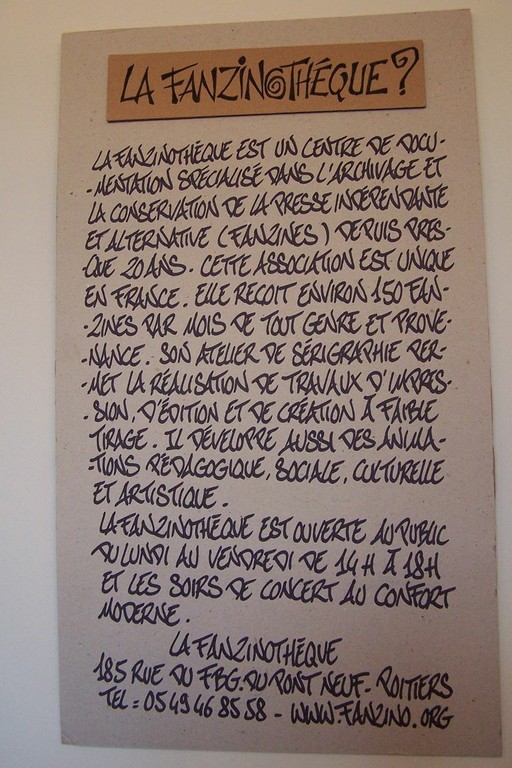 LA FANZINOTHÉQUE ?
LA FANZINOTHÉQUE EST UN CENTRE DE DOCU-
-MENTATION SPÉCIALISÉ DANS L'ARCHIVAGE ET
LA CONSERVATION DE LA PRESSE INDÉPENDANTE
ET ALTERNATIVE (FANZINES) DEPUIS PRES-
-QUE 20 ANS. CETTE ASSOCIATION EST UNIQUE
EN FRANCE. ELLE REÇOIT ENVIRON 150 FAN-
-ZINES PAR MOIS DE TOUT GENRE ET PROVE-
-NANCE. SON ATELIER DE SÉRIGRAPHIE PER-
-MET LA RÉALISATION DE TRAVAUX D'IMPRES-
-SION, D'ÉDITION ET DE CRÉATION À FAIBLE
TIRAGE. IL DÉVELOPPE AUSSI DES ANIMA-
-TIONS PÉDAGOGIQUE, SOCIALE, CULTURELLE
ET ARTISTIQUE.
LA FANZINOTHÉQUE EST OUVERTE AU PUBLIC
DU LUNDI AU VENDREDI DE 14H À 18H
ET LES SOIRS DE CONCERT AU CONFORT
MODERNE.
LA FANZINOTHÉQUE
185 RUE DU FBG. DU PONT NEUF - POITIERS
TEL = 05 49 46 85 58 - WWW.FANZINO.ORG